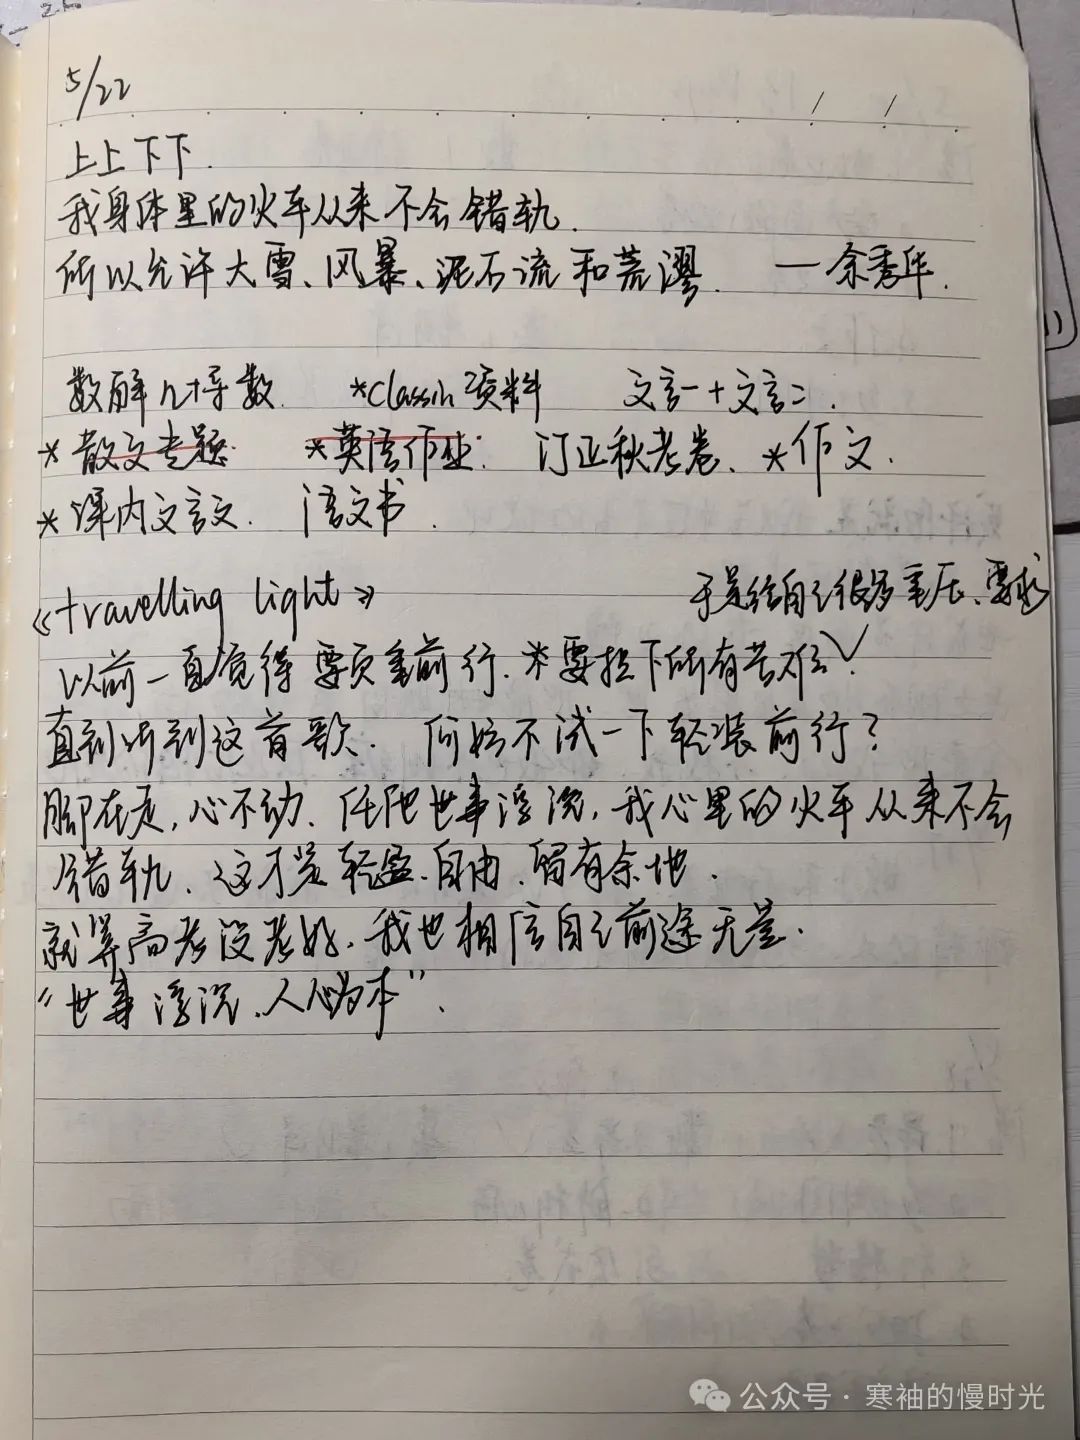 5/22
上上下下.
我身体里的火车从来不会错轨.
所以允许大雪、风暴、泥石流和荒谬. —余秀华.
数解几+导数. *classin资料 文言一+文言二.
*散文专题 *英语作业. 订正秋考卷. *作文.
*课内文言文. 语文书.
《travelling light》 于是给自己很多重压、要求
以前一直觉得要负重前行.要担下所有苦难
直到听到这首歌. 何妨不试一下轻装前行?
脚在走,心不动. 任他世事浮沉,我心里的火车从来不会
错轨. 这才是轻盈.自由.留有余地.
就算高考没考好.我也相信自己前途无量.
“世事浮沉.人心为本”.
公众号·寒袖的慢时光